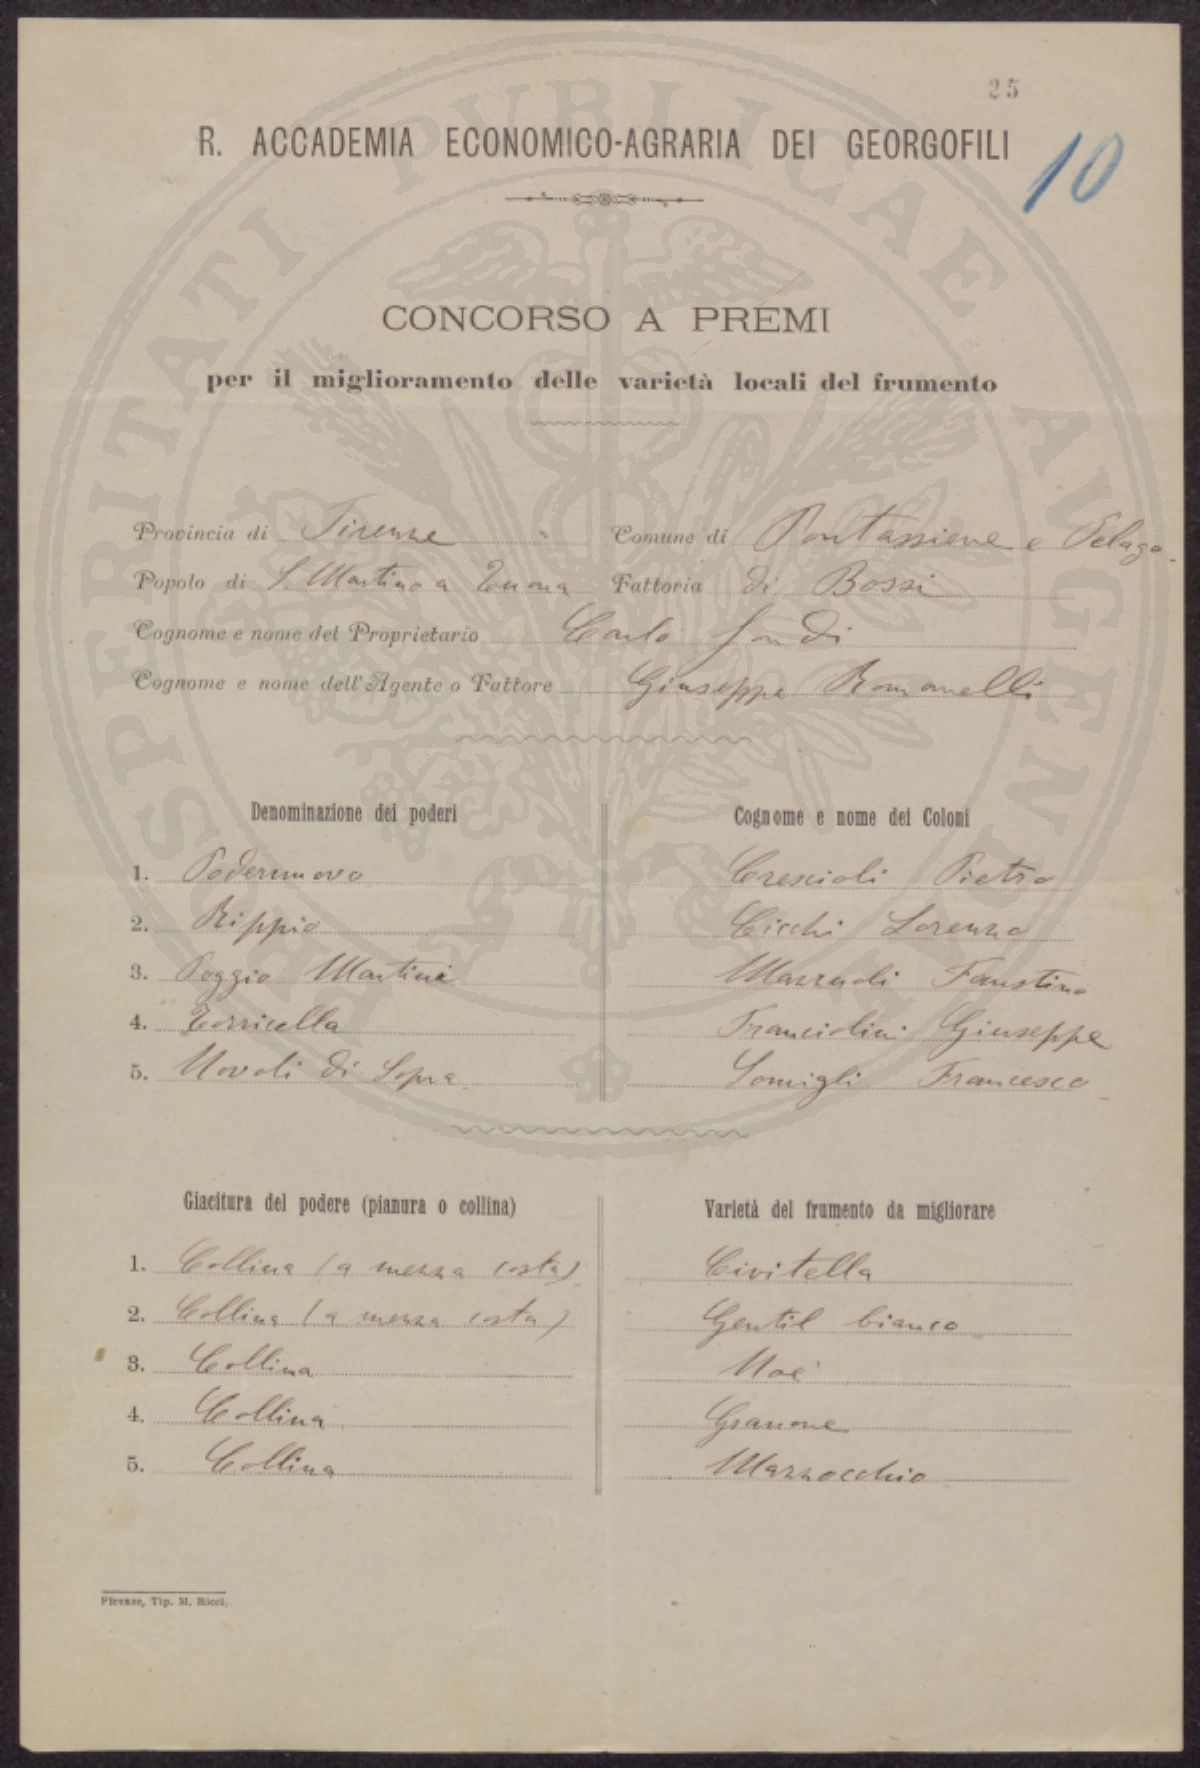 25
R. ACCADEMIA ECONOMICO-AGRARIA DEI GEORGOFILI
10
CONCORSO A PREMI
per il miglioramento delle varietà locali del frumento
Provincia di Firenze Comune di Pontassieve e Pelago
Popolo di S. Martino a Fattoria di Bossi
Cognome e nome del Proprietario Carlo
Cognome e nome dell'Agente o Fattore Giuseppe Romanelli
Denominazione dei poderi Cognome e nome dei Coloni
1. Poderenuovo Crescioli Pietro
2. Rippio Cicchi Lorenzo
3. Poggio Martini Mazzuoli Faustino
4. Torricella Franciolini Giuseppe
5. Novoli di Sopra Somigli Francesco
Giacitura del podere (pianura o collina) Varietà del frumento da migliorare
1. Collina (a mezza costa) Civitella
2. Collina (a mezza costa) Gentil bianco
3. Collina Noè
4. Collina Granone
5. Collina Mazzocchio
Firenze, Tip. M. Ricci.
PROSPERITATI PVBLICAE AVGENDAE